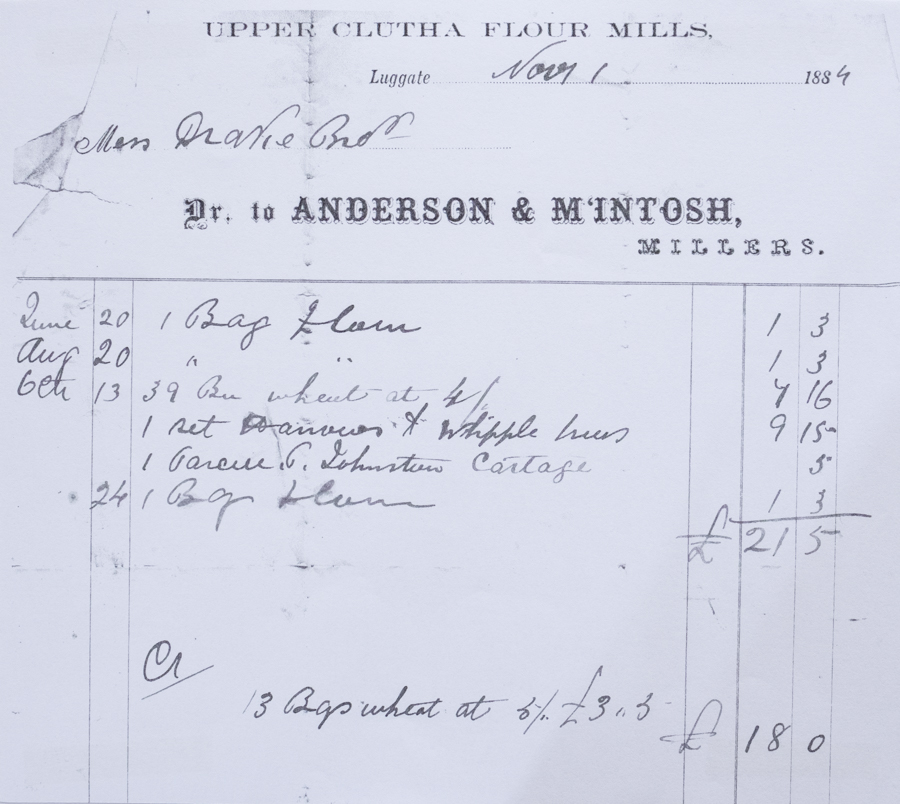 UPPER CLUTHA FLOUR MILLS,
Luggate Novr 1 1884
Mess Drake Bros
Dr. to ANDERSON & M'INTOSH,
MILLERS.
June 20 1 Bag Flour 1 3
Aug 20 " " 1 3
Octr 13 39 Bu wheat at 4/ 7 16
1 set Harrows & Whipple trees 9 15
1 Parcel P. Johnston Cartage 5
24 1 Bg Flour 1 3
£ 21 5
Cr
13 Bgs wheat at 5/. £3 " 5
£ 18 0